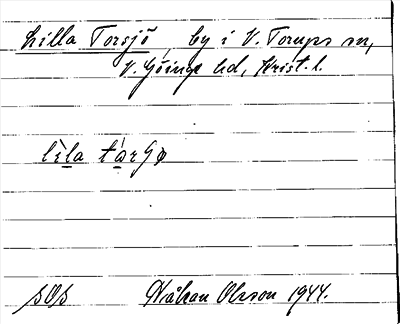 Lilla Torsjö, by i V. Torups sn,
V. Göinge hd, Krist. l.
lìla tárʃø
SOS Håkan Olsson 1944.